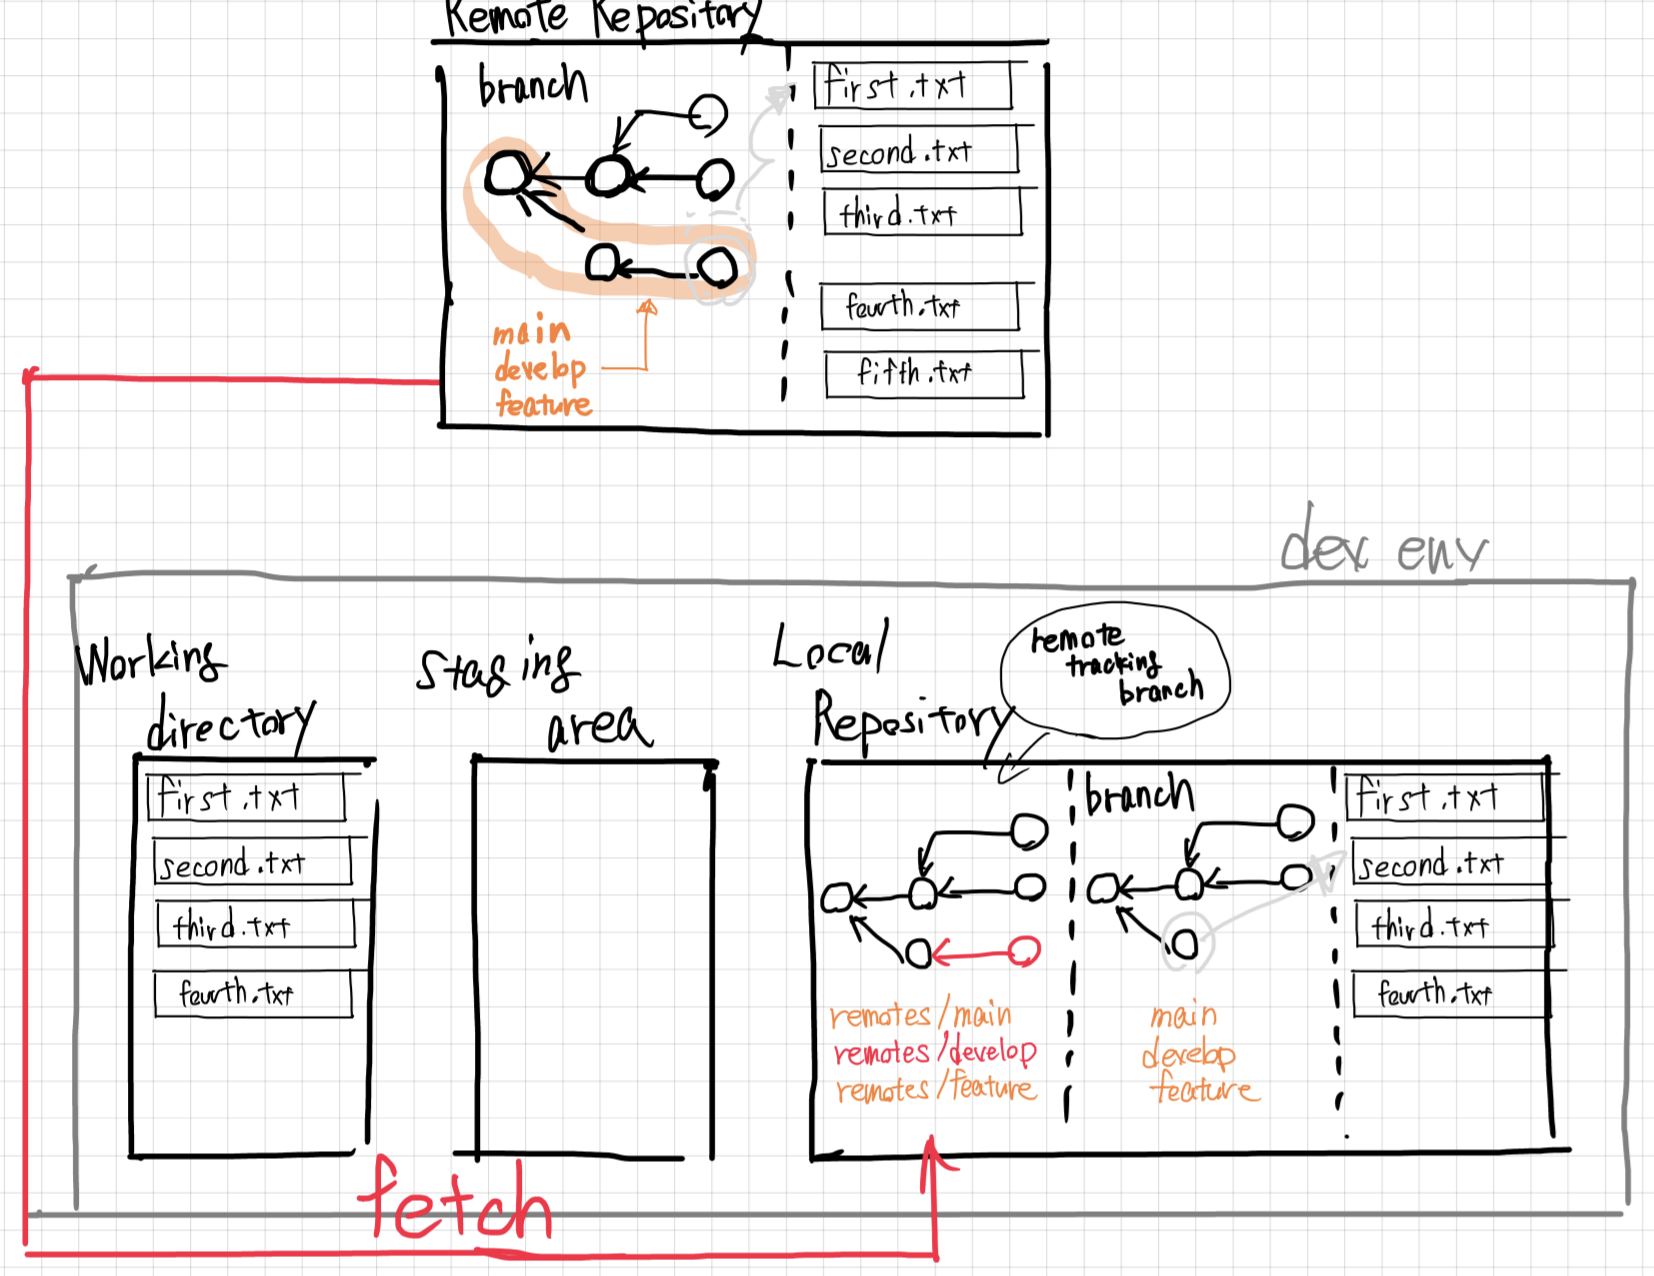 Remote Repository
branch
first.txt
second.txt
third.txt
fourth.txt
fifth.txt
main
develop
feature
dev env
Working
directory
first.txt
second.txt
third.txt
fourth.txt
Staging
area
Local
Repository
remote
tracking
branch
remotes/main
remotes/develop
remotes/feature
branch
main
develop
feature
first.txt
second.txt
third.txt
fourth.txt
fetch